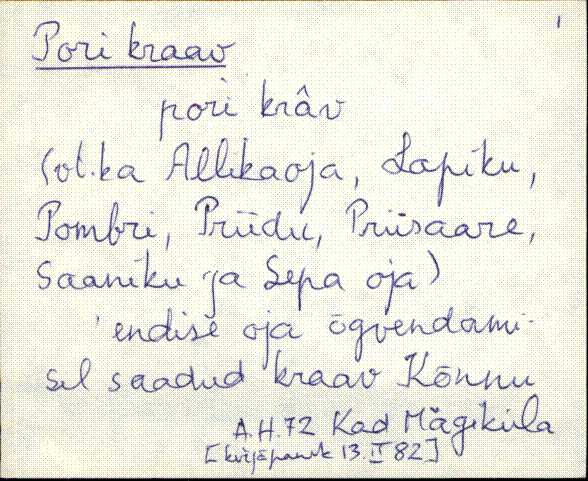 1
Pori kraav
pori krâv
(vt. ka Allikaoja, Lapiku,
Pombri, Priidu, Priisaare,
Saaniku ja Sepa oja)
endise oja õgvendami-
sel saadud kraav Kõnnu
A.H.72 Kad Mägiküla
[kirjapanek 13.II 82]